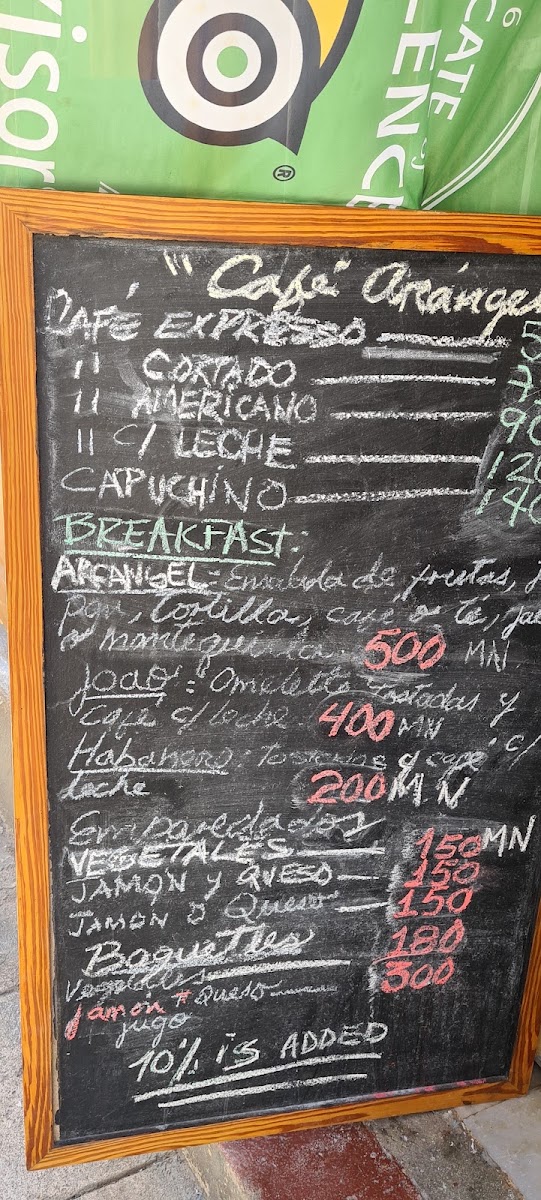 visor
LENCE
CATE of
6
"Café" Arcánge
CAFÉ EXPRESSO 5
" CORTADO 7
" AMERICANO 90
" C/ LECHE 120
CAPUCHINO 140
BREAKFAST:
ARCANGEL: Ensalada de frutas, j
pan, tortilla, café o té, ja
o mantequilla 500 MN
Joao: Omelette tostadas y
café c/ leche 400 MN
Habanero: tostadas y café c/
leche 200 MN
Emparedados
VEGETALES 150 MN
JAMÓN Y QUESO 150
JAMÓN O Queso 150
Baguettes 180
Vegetales 300
Jamón # Queso
jugo
10% is ADDED